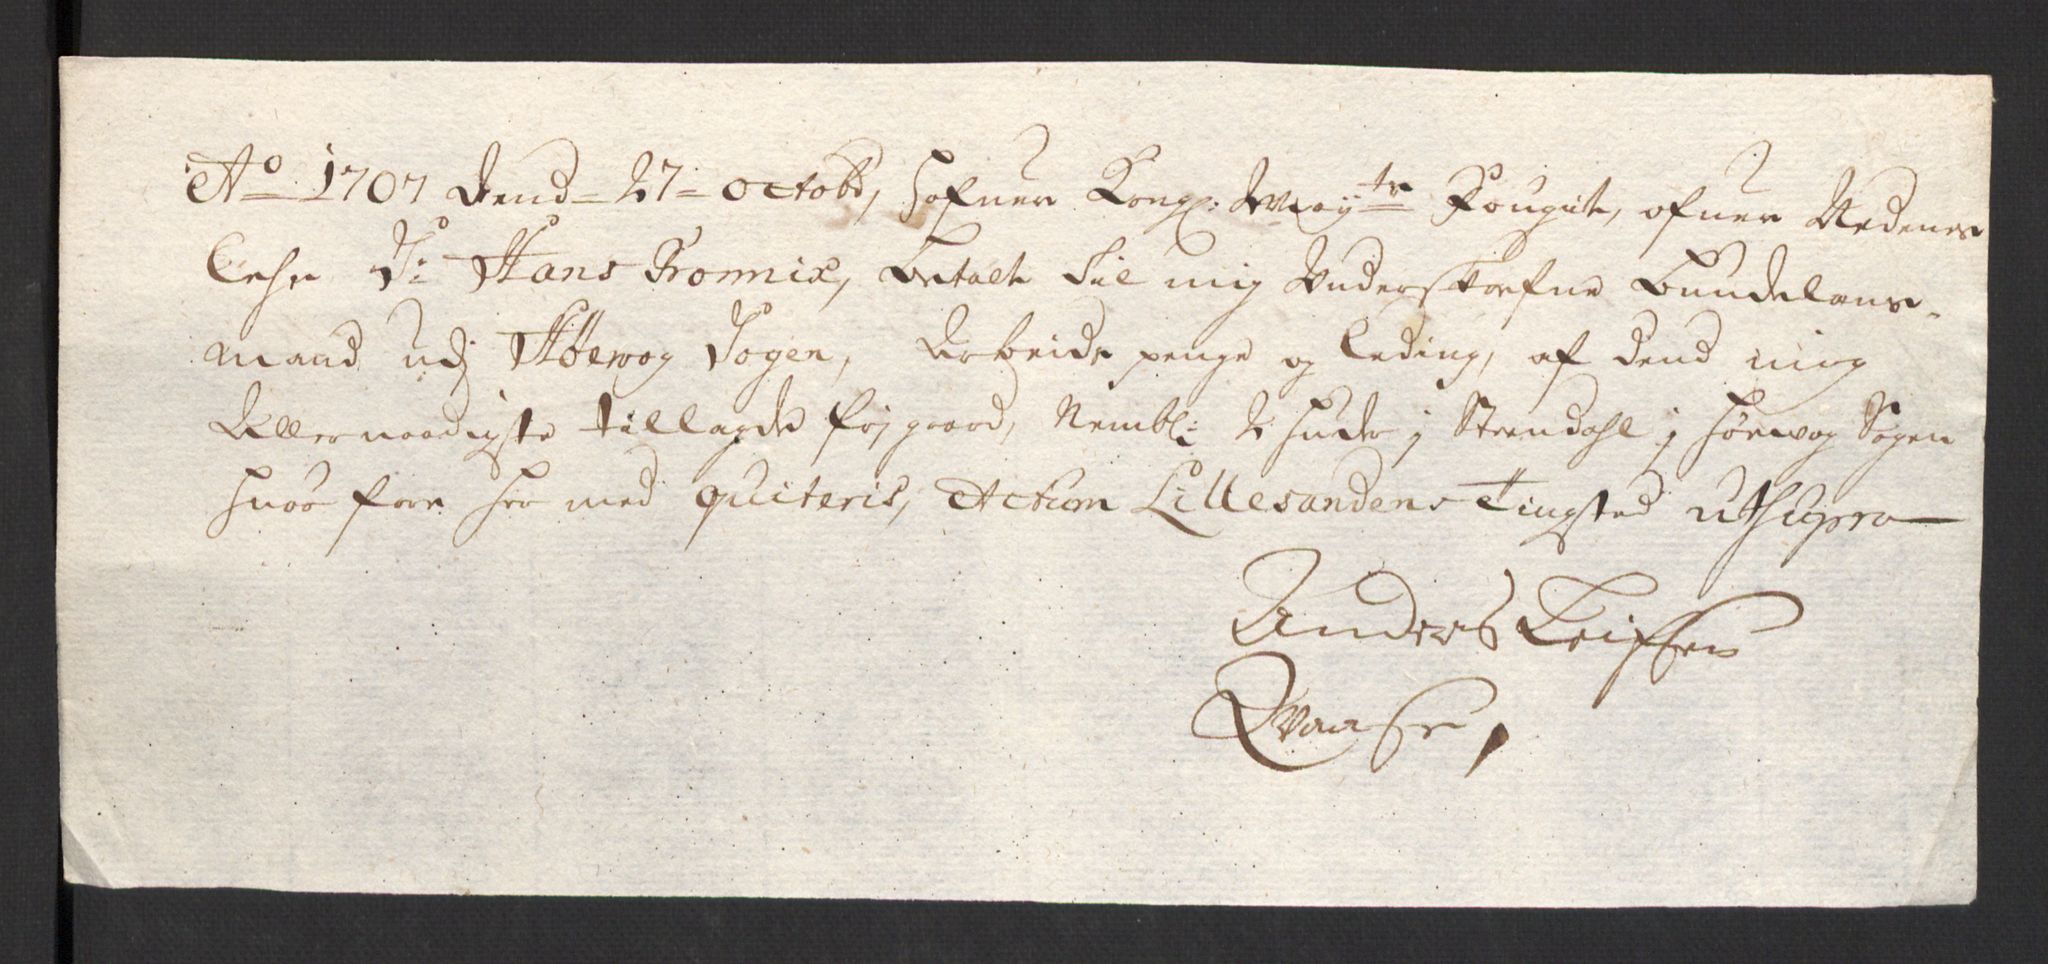 Ao 1707 dend 27 octobr, hafuer Kongl: Mayts Fougit, ofuer Nedenes
Lehn Sr: Hans Tromnix, betalt til mig Underskrefne bundelens-
mand udj Høewog Sogen, Arbeids penge og leding, af dend mig
Allernaadigste tillagde frj gaard, Nembl: 2 huder j Steendahl j Høewog Sogen
huor fore her med quiteris, Actum Lillesandens Tingsted utsupra
Anders Leifsen
Qvaase,